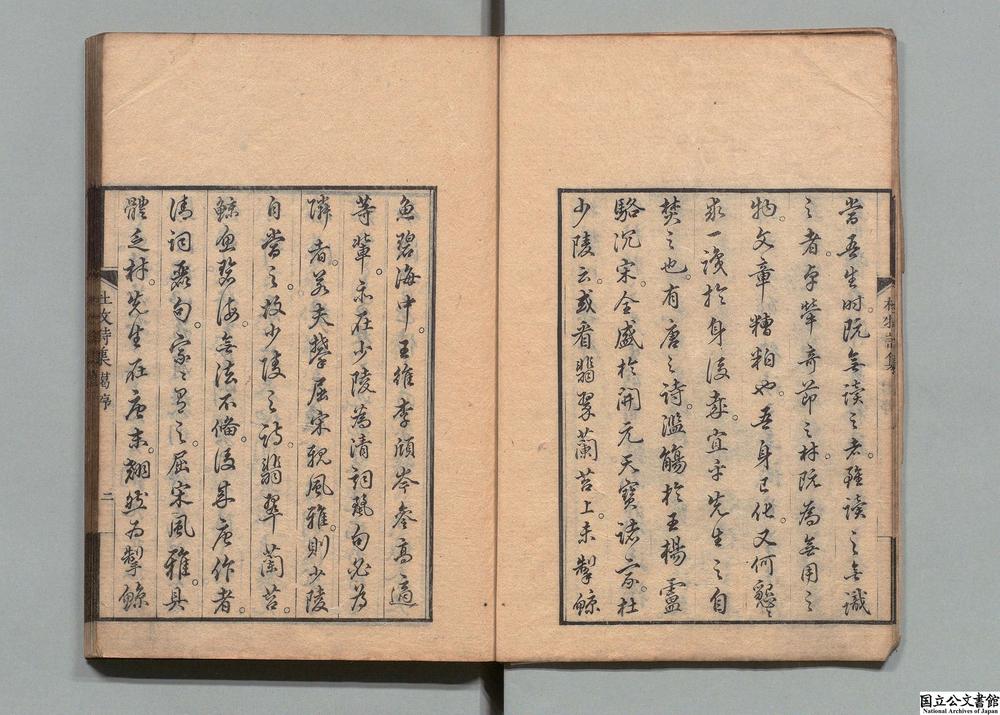 當吾生時既無讀之者。雖讀之無識
之者。宇犖奇節之材既為無用之
物。文章糟粕也。吾身已化。又何戀〻
求一讀於身後哉。宜乎先生之自
焚之也。有唐之詩。濫觴於王楊盧
駱沉宋。全盛於開元天寶諸家。杜
少陵云。或看翡翠蘭苕上。未掣鯨
魚碧海中。王維李頎岑參高適
等輩。亦在少陵為清詞麗句必為
隣者。若夫攀屈宋親風雅。則少陵
自當之。故少陵之詩。翡翠蘭苕。
鯨魚碧海。無法不備。後來唐作者。
清詞麗句。家〻有之。屈宋風雅。具
體乏材。先生在唐末。翹然為掣鯨
杜牧詩集
杜牧詩集 葛序 二
国立公文書館
National Archives of Japan